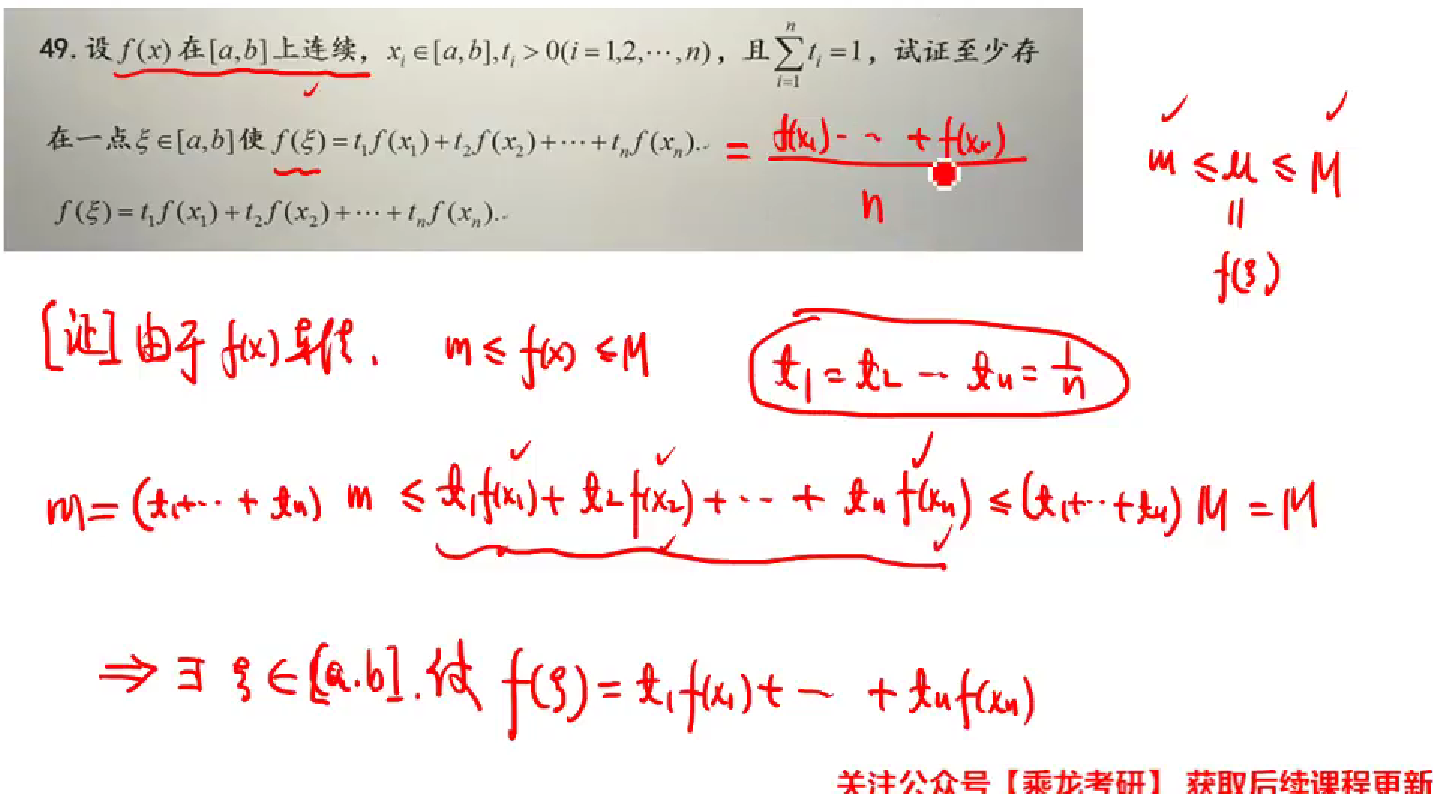 49. 设 f(x) 在[a,b]上连续，x_i∈[a,b],t_i>0(i=1,2,⋯,n)，且∑_{i=1}^{n} t_i=1，试证至少存
在一点ξ∈[a,b]使 f(ξ)=t₁f(x₁)+t₂f(x₂)+⋯+t_nf(x_n). = (f(x₁)-- + f(x_n))/n
f(ξ)=t₁f(x₁)+t₂f(x₂)+⋯+t_nf(x_n).
m ≤ μ ≤ M
||
f(ξ)
[证] 由于 f(x) 连续. m ≤ f(x) ≤ M
t₁ = t₂ -- t_n = 1/n
m = (t₁+⋯+t_n) m ≤ t₁f(x₁)+ t₂f(x₂)+⋯+ t_n f(x_n) ≤ (t₁+⋯+t_n) M = M
⇒ ∃ ξ∈[a.b]. 使 f(ξ)= t₁f(x₁)+ ⋯ + t_nf(x_n)
关注公众号【乘龙考研】 获取后续课程更新